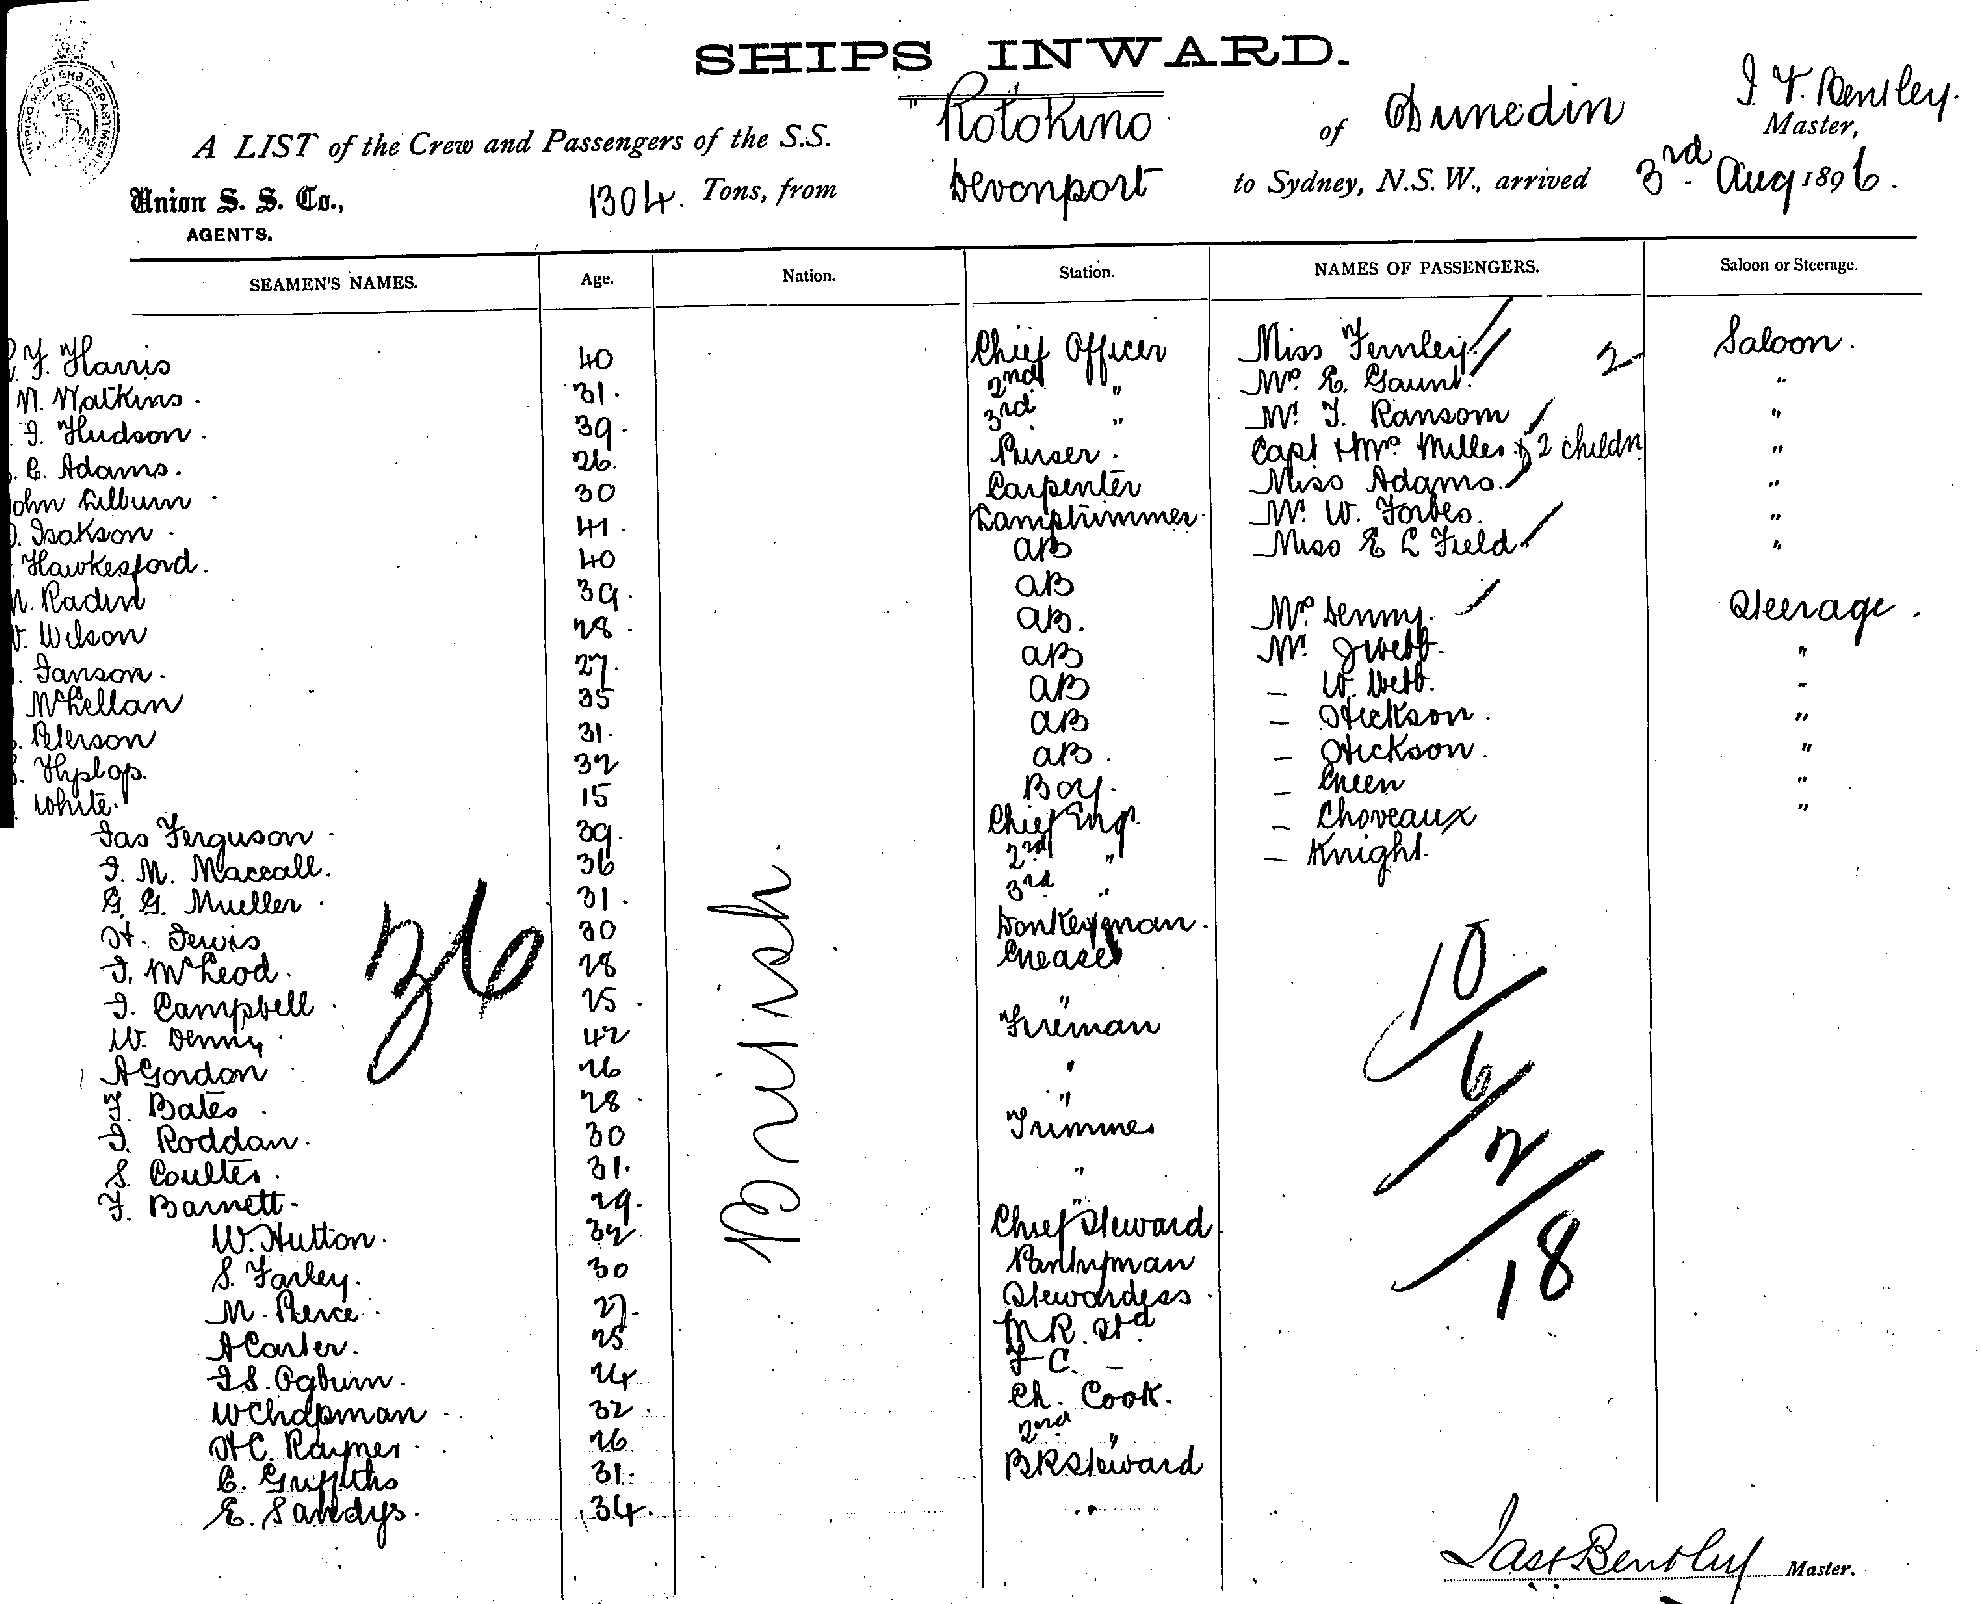 SHIPS INWARD.
J. F. Bentley.
A LIST of the Crew and Passengers of the S.S. "Rotokino of Dunedin Master,
Union S. S. Co., 1304. Tons, from Devonport to Sydney, N.S.W., arrived 3rd Aug 1896.
AGENTS.
SEAMEN'S NAMES. Age. Nation. Station. NAMES OF PASSENGERS. Saloon or Steerage.
F. Harris 40 Chief Officer Miss Fernley 2 Saloon.
Watkins. 31. 2nd " Mrs E. Gaunt. "
J. Hudson. 39. 3rd " Mr J. Ransom "
C. Adams. 26. Purser. Capt & Mrs Milles & 2 childn "
John Lilburn 30 Carpenter Miss Adams. "
Isakson. 41. Lamptrimmer. Mr W. Forbes. "
Hawkesford. 40 AB Miss E L Field "
Radin 39. AB
W. Wilson 28. AB. Mrs Denny. Steerage.
Janson. 27. AB Mr J Webb. "
McLellan 35 AB – W. Webb. "
Peterson 31. AB – Hickson. "
Hyslop. 32 AB. – Hickson. "
White. 15 Boy. – Green "
Jas Ferguson 39. Chief Engr. – Choveaux "
J. M. Maccall. 36 2nd " – Knight.
G. G. Mueller. 31. 3rd "
H. Jewis 30 Donkeyman.
J. McLeod. 28 Greaser
J. Campbell 25. "
W. Denny 42 Fireman
A Gordon 26 "
F. Bates. 28. "
J. Roddan. 30 Trimmer
S. Coulter. 31. "
F. Barnett. 29. "
W. Hutton. 32. Chief Steward
S. Farley. 30 Pantryman
M. Pierce. 27. Stewardess.
A Carter. 25 M R. Std
J S. Ogburn. 24 F C. –
W Chapman 32. Ch. Cook.
H C. Raymer 26 2nd "
C. Griffiths 31. B R Steward
E. Sandys. 34. "
36
British
10
6
2
18
Jas F Bentley Master.